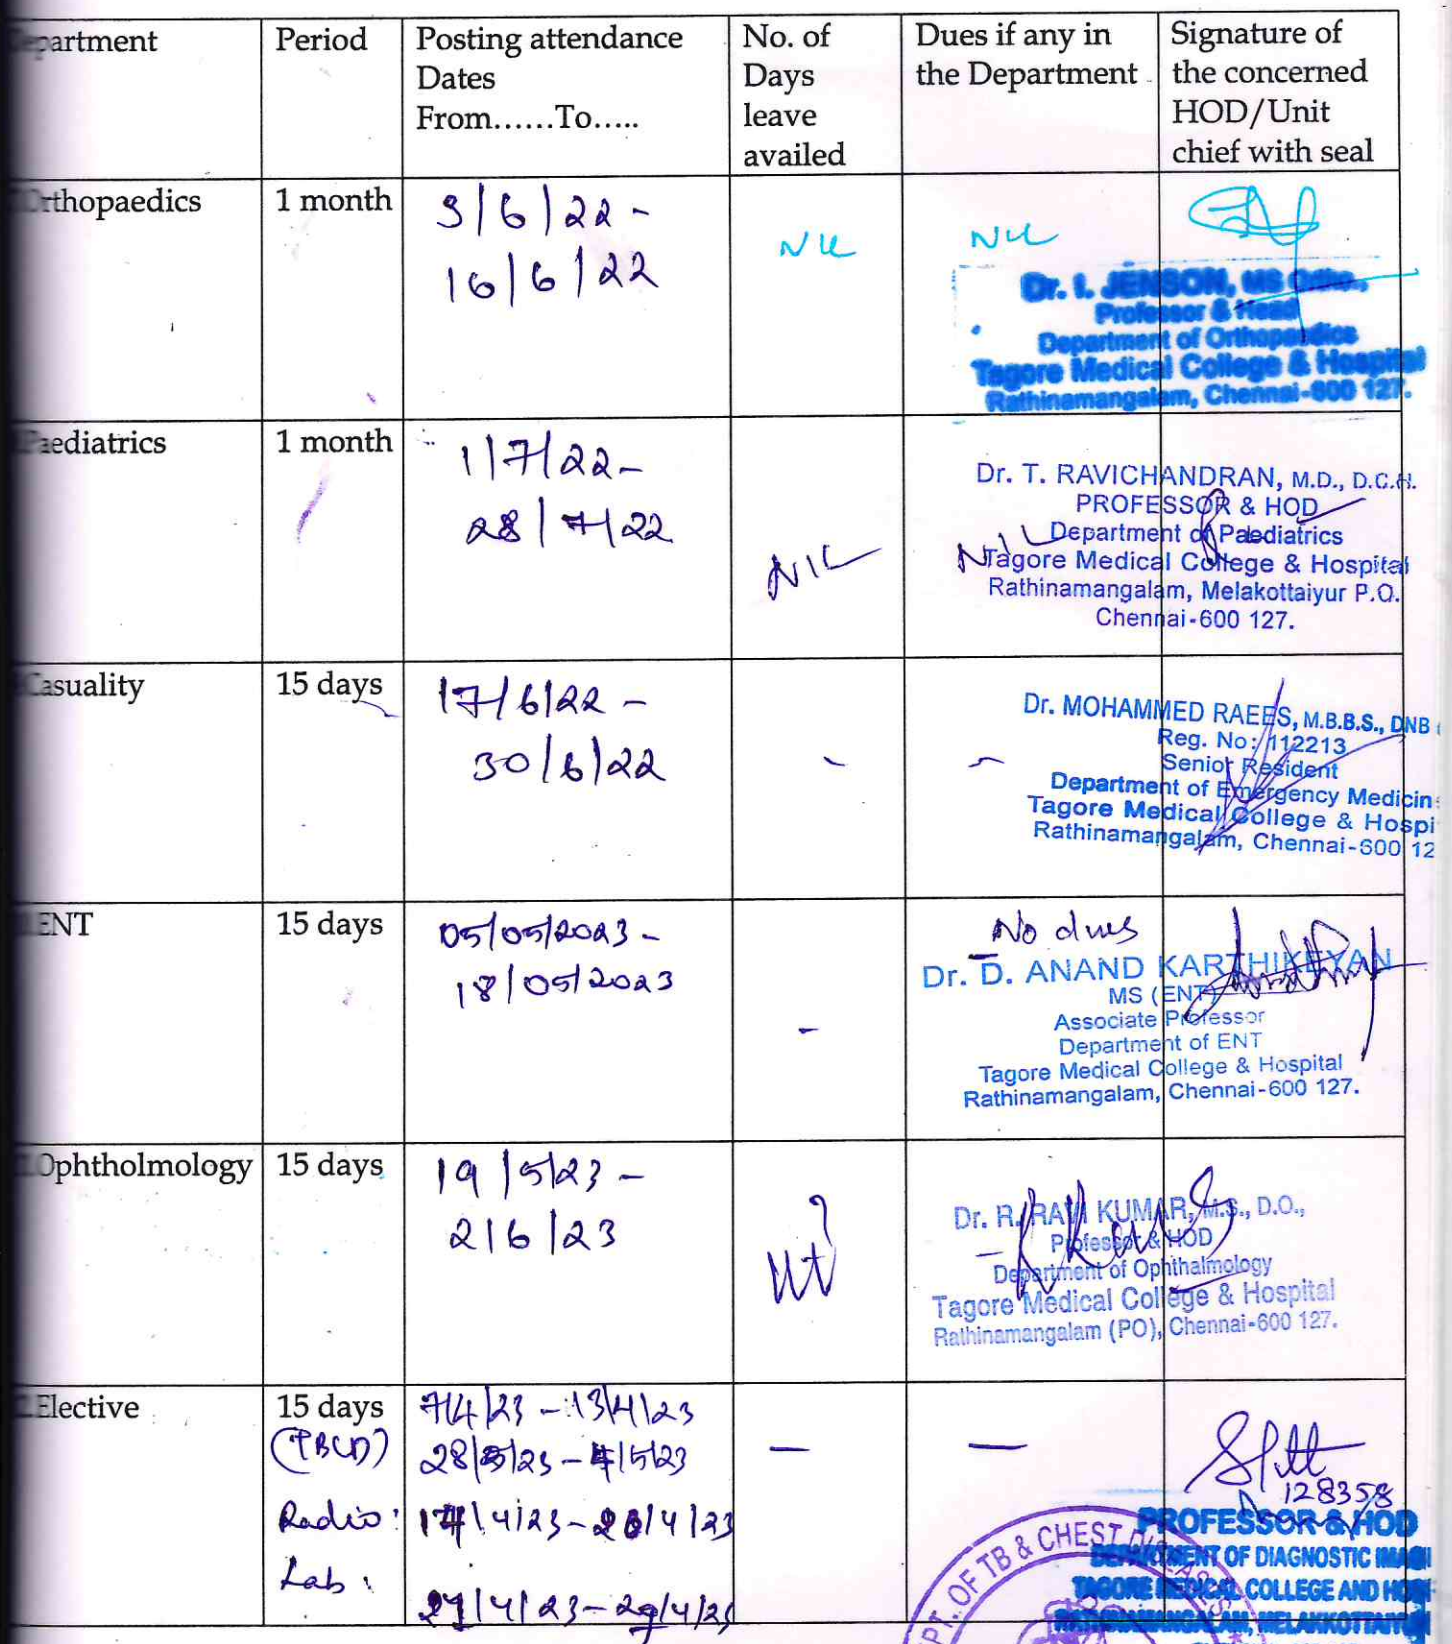 epartment
Period
Posting attendance
Dates
From......To.....
No. of
Days
leave
availed
Dues if any in
the Department
Signature of
the concerned
HOD/Unit
chief with seal
Orthopaedics
1 month
3/6/22 -
16/6/22
NIL
NIL
Dr. I. JENSON, MS Ortho.,
Professor & Head
Department of Orthopaedics
Tagore Medical College & Hospital
Rathinamangalam, Chennai-600 127.
Paediatrics
1 month
1/7/22 -
28/7/22
NIL
NIL
Dr. T. RAVICHANDRAN, M.D., D.C.H.
PROFESSOR & HOD
Department of Paediatrics
Tagore Medical College & Hospital
Rathinamangalam, Melakottaiyur P.O.
Chennai-600 127.
Casuality
15 days
17/6/22 -
30/6/22
-
-
Dr. MOHAMMED RAEES, M.B.B.S., DNB
Reg. No: 112213
Senior Resident
Department of Emergency Medicin
Tagore Medical College & Hospi
Rathinamangalam, Chennai-600 12
ENT
15 days
05/05/2023 -
18/05/2023
-
No dues
Dr. D. ANAND KARTHIKEYAN
MS (ENT)
Associate Professor
Department of ENT
Tagore Medical College & Hospital
Rathinamangalam, Chennai-600 127.
Ophtholmology
15 days
19/5/23 -
2/6/23
Dr. R. RAVI KUMAR, M.S., D.O.,
Professor & HOD
Department of Ophthalmology
Tagore Medical College & Hospital
Rathinamangalam (PO), Chennai-600 127.
Elective
15 days
(TBCD)
7/4/23 - 13/4/23
Radio:
Lab:
—
—
128358
PROFESSOR & HOD
DEPARTMENT OF DIAGNOSTIC IMAGI
TAGORE MEDICAL COLLEGE AND HOS
RATHINAMANGALAM, MELAKKOTTAIYUR
PT. OF TB & CHEST DISEASES